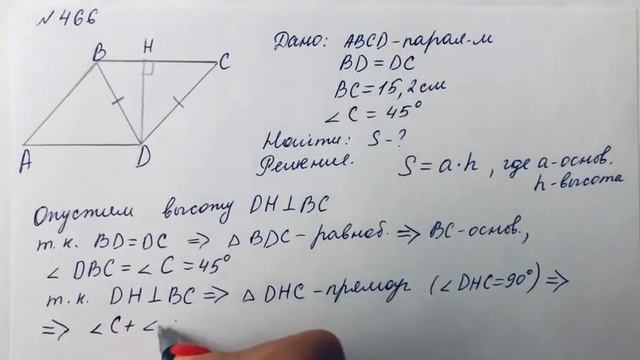 №466
B H C
A D
Дано: ABCD-парал-м
BD=DC
BC=15,2см
∠C=45°
Найти: S-?
Решение.
S=a·h, где a-основ.
h-высота
Опустим высоту DH⊥BC
т.к. BD=DC => △BDC-равноб. => BC-основ.,
∠DBC=∠C=45°
т.к. DH⊥BC => △DHC-прямоуг (∠DHC=90°) =>
=> ∠C+∠